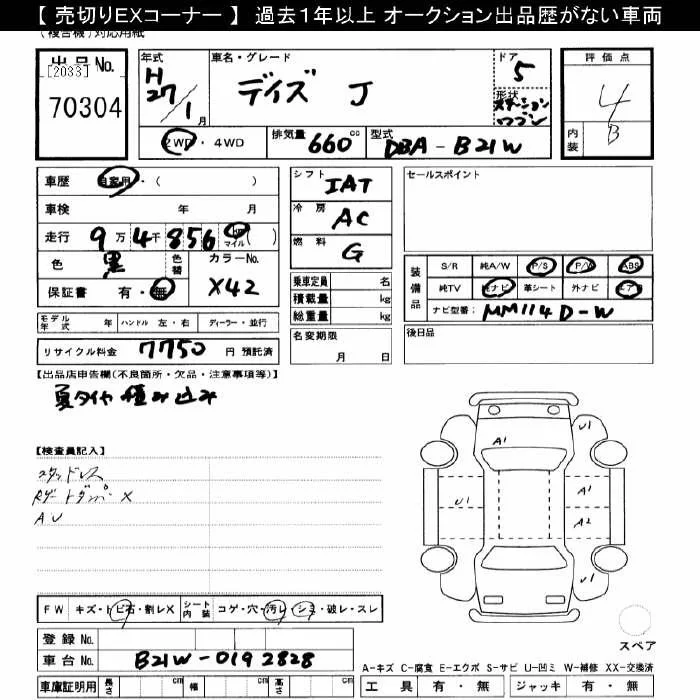 【 売切りEXコーナー 】 過去1年以上 オークション出品歴がない車両
(複合機)対応用紙
出品No.
[2033]
70304
年式
H27/1月
車名・グレード
デイズ J
ドア
5
形状
ステーションワゴン
評価点
4
内装
B
2WD・4WD
排気量 660cc
型式 DBA-B21W
車歴 自家用・( )
車検 年 月
走行 9万4千856 km マイル( )
色 黒 色替 カラーNo.
保証書 有・無 X42
シフト IAT
冷房 AC
燃料 G
セールスポイント
乗車定員 名
積載量 kg
総重量 kg
装備品
S/R 純A/W P/S P/W ABS
純TV 純ナビ 革シート 外ナビ エアB
ナビ型番: MM114D-W
モデル年式 年 ハンドル 左・右 ディーラー・並行
名変期限
月 日
後日品
リサイクル料金 7750 円 預託済
【出品店申告欄(不良箇所・欠品・注意事項等)】
夏タイヤ積み込み
【検査員記入】
スタッドレス
Rゲートダンパー X
AU
A1
U1
U1
A1
A2
U1
スペア
FW キズ・トビ石・割レX シート内装 コゲ・穴・汚レ・シミ・破レ・スレ
登録No.
車台No. B21W-0192828
A-キズ C-腐食 E-エクボ S-サビ U-凹ミ W-補修 XX-交換済
車庫証明用 長さ cm 幅 cm 高さ cm
工具 有・無 ジャッキ 有・無